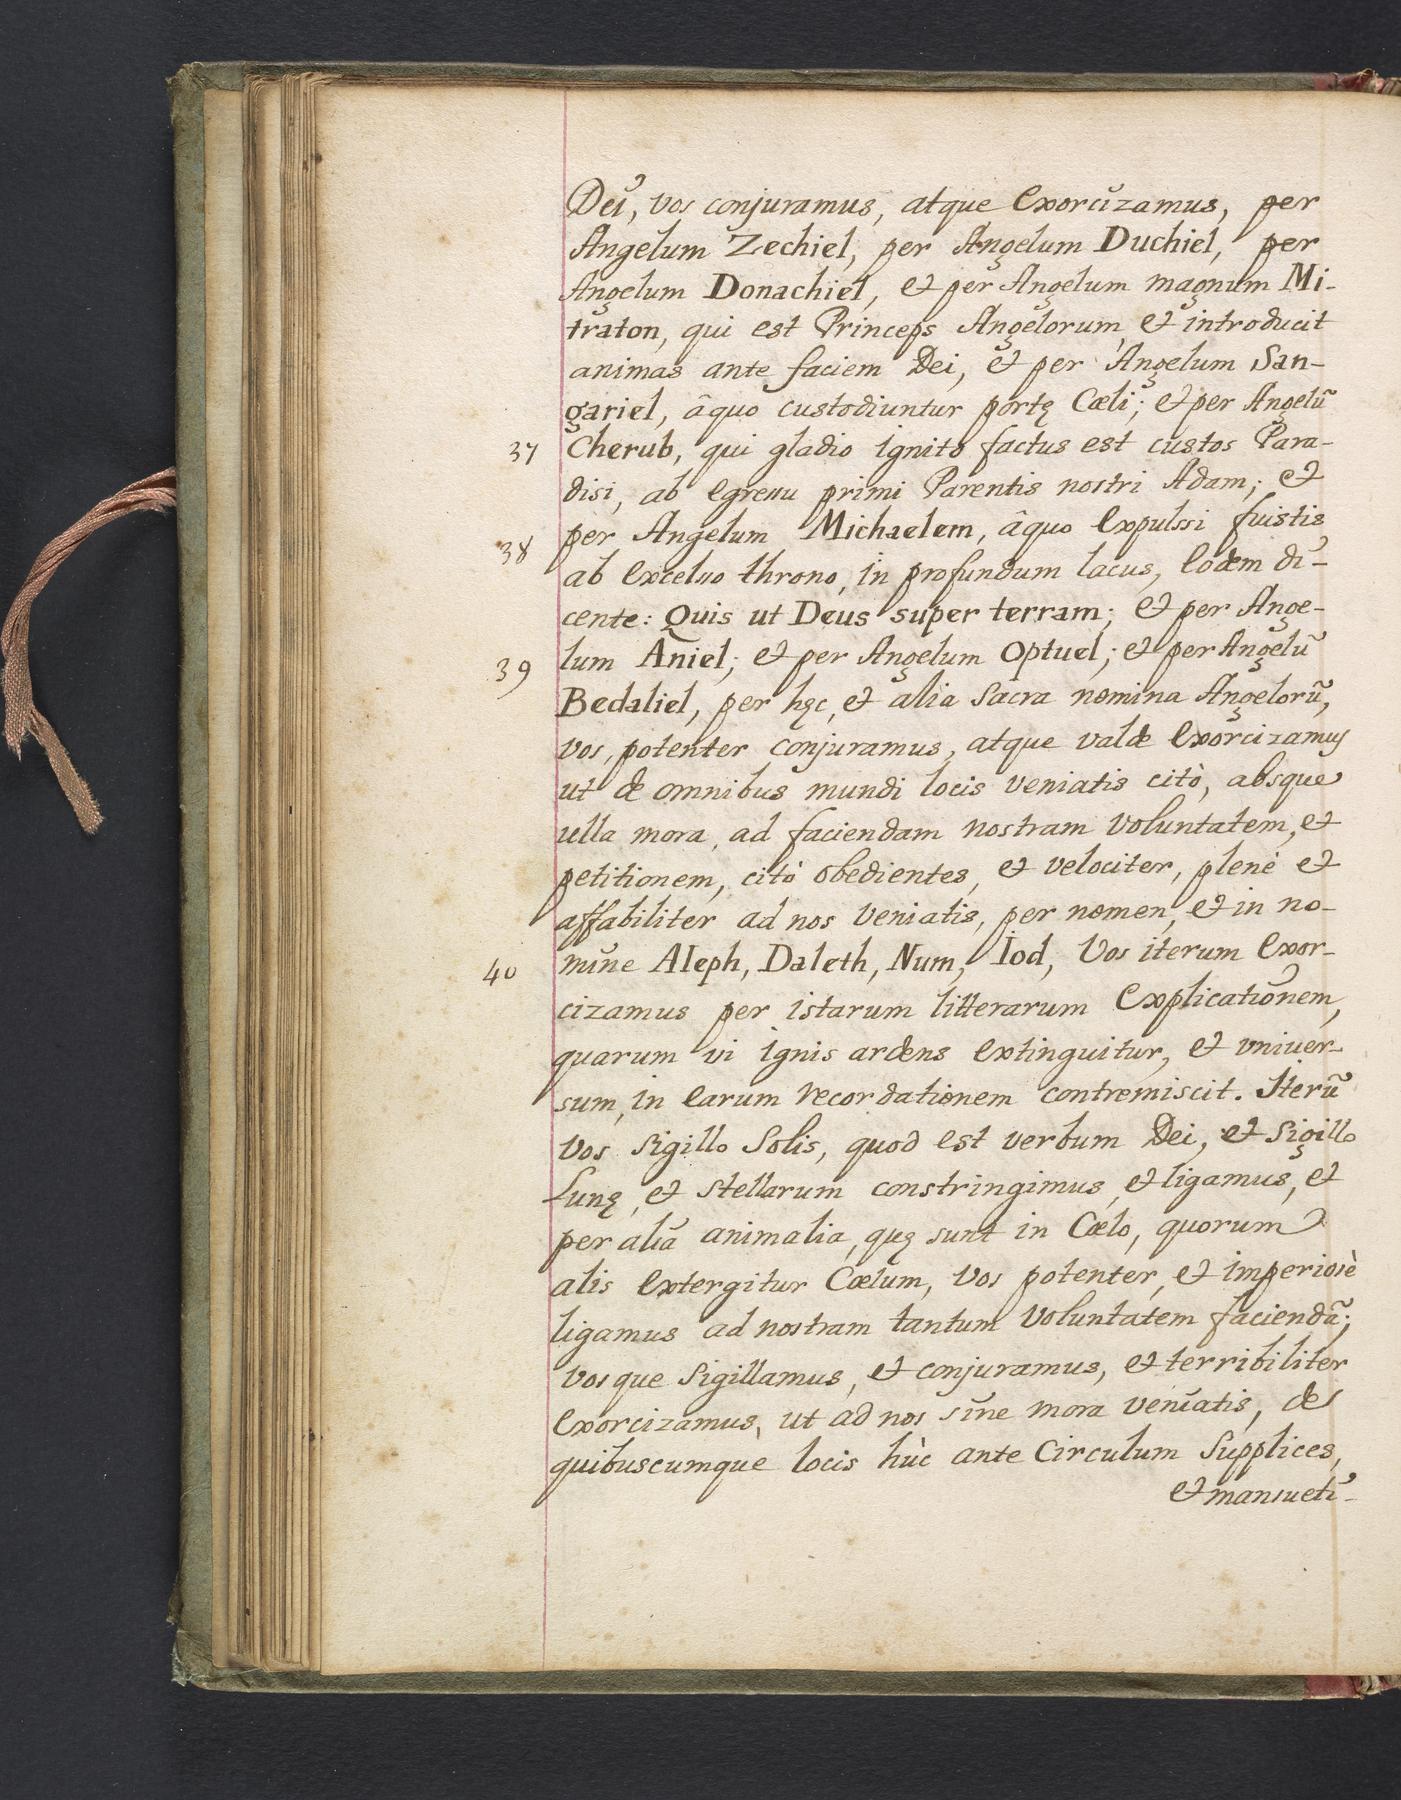 Dei, vos conjuramus, atque Exorcizamus, per
Angelum Zechiel, per Angelum Duchiel, per
Angelum Donachiel, et per Angelum magnum Mi-
traton, qui est Princeps Angelorum, et introducit
animas ante faciem Dei, et per Angelum San-
gariel, âquo custodiuntur portę Cœli; et per Angelũ
37 Cherub, qui gladio ignito factus est custos Para-
disi, ab egressu primi Parentis nostri Adam; et
38 per Angelum Michaelem, âquo Expulssi fuistis
ab Excelsso throno, in profundum lacus, Eodem di-
cente: Quis ut Deus super terram; et per Ange-
39 lum Aniel; et per Angelum Optuel; et per Angelũ
Bedaliel, per hęc, et alia Sacra nomina Angelorũ,
vos, potenter conjuramus, atque valde Exorcizamus
ut de omnibus mundi locis veniatis citò, absque
ulla mora, ad faciendam nostram Voluntatem, et
petitionem, citò obedientes, et velociter, plenè et
affabiliter ad nos Veniatis, per nomen, et in no-
40 mine Aleph, Daleth, Num, Iod, Vos iterum Exor-
cizamus per istarum litterarum Explicationem,
quarum vi ignis ardens Extinguitur, et vniuer-
sum, in Earum recordationem contremiscit. Iterũ
Vos Sigillo Solis, quod est verbum Dei, et Sigillo
Lunę, et Stellarum constringimus, et ligamus, et
per alia animalia, quę sunt in Cœlo, quorum
alis Extergitur Cœlum, Vos potenter, et imperiosè
ligamus ad nostram tantum Voluntatem faciendã;
Vosque Sigillamus, et conjuramus, et terribiliter
Exorcizamus, ut ad nos sine mora veniatis, de
quibuscumque locis hùc ante Circulum Supplices,
et mansueti-